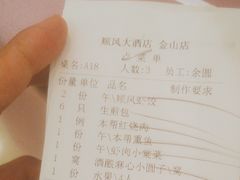 顺风大酒店 金山店
点菜单
桌名:A18 人数:3 员工:余圆
份量 单位 品名 制作要求
2 份 午\顺风虾饺
6 只 生煎包
1 例 本帮红烧肉
1 份 午\本帮熏鱼
1 份 午\虾肉小馄饨
1 窝 酒酿湘心小圆子\窝
1 份 水果\4人